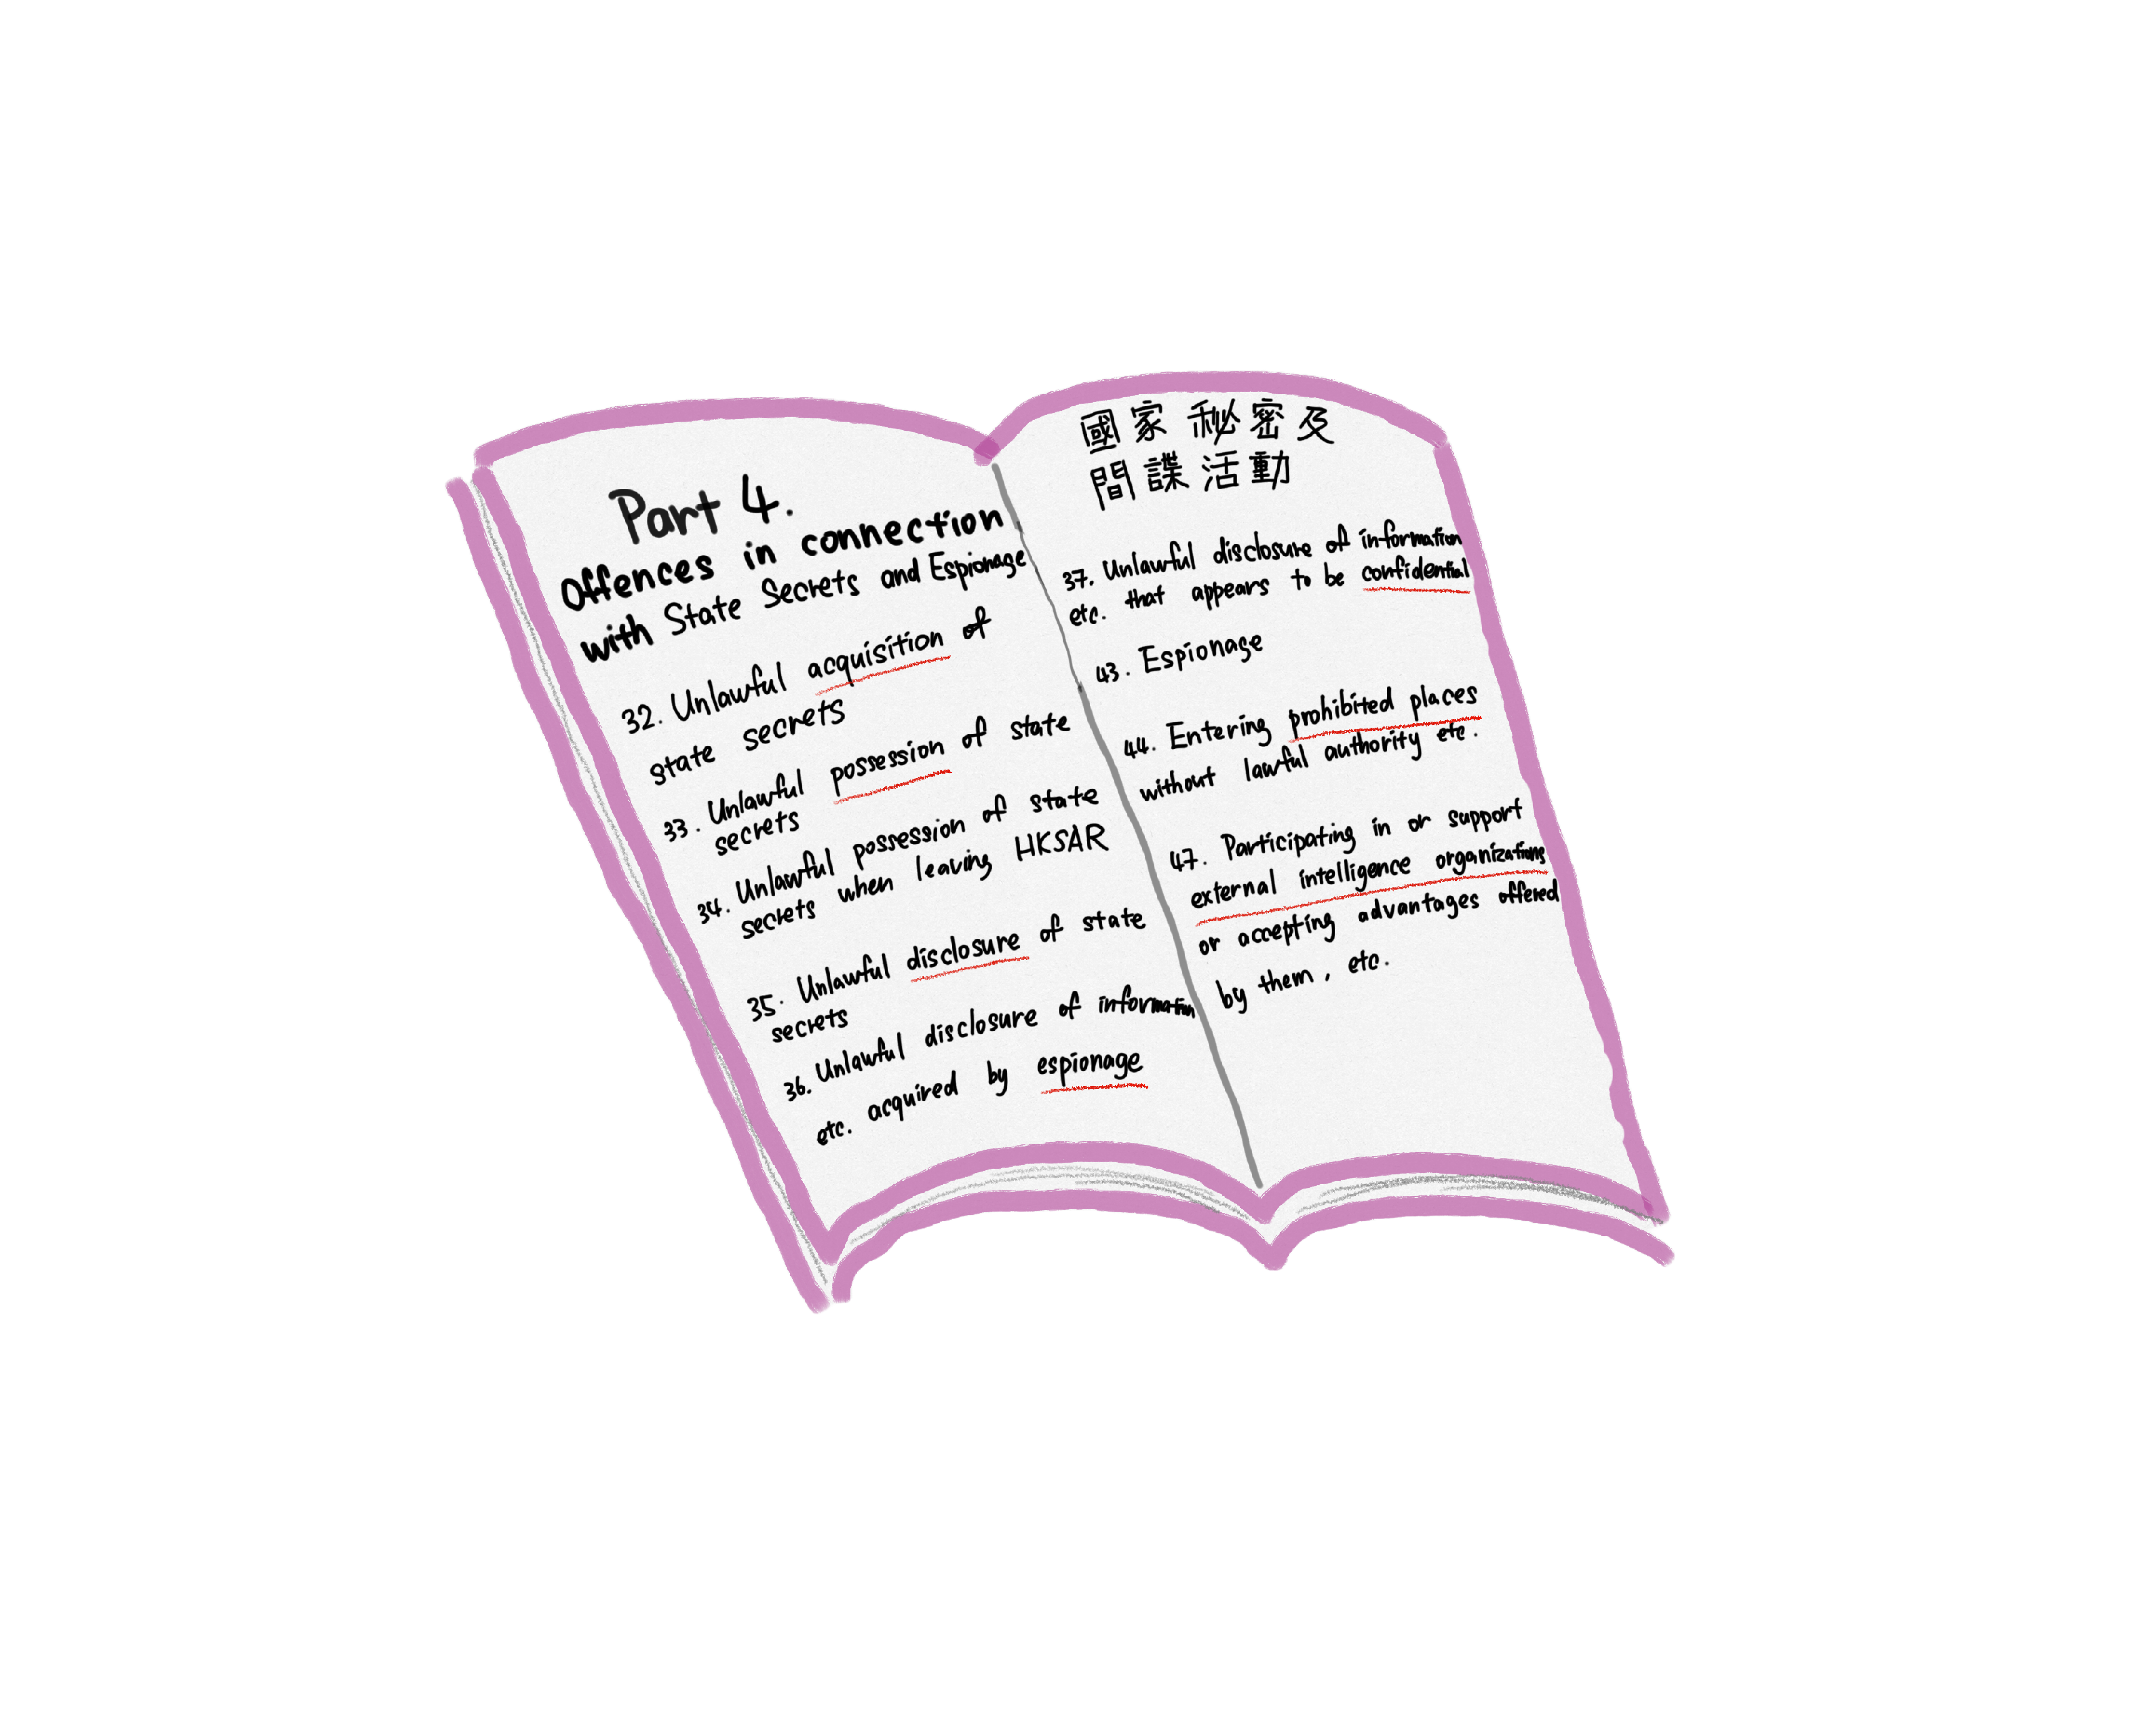 Part 4.
Offences in connection
with State Secrets and Espionage
32. Unlawful acquisition of
state secrets
33. Unlawful possession of state
secrets
34. Unlawful possession of state
secrets when leaving HKSAR
35. Unlawful disclosure of state
secrets
36. Unlawful disclosure of information
etc. acquired by espionage
國家秘密及
間諜活動
37. Unlawful disclosure of information
etc. that appears to be confidential
43. Espionage
44. Entering prohibited places
without lawful authority etc.
47. Participating in or support
external intelligence organizations
or accepting advantages offered
by them, etc.